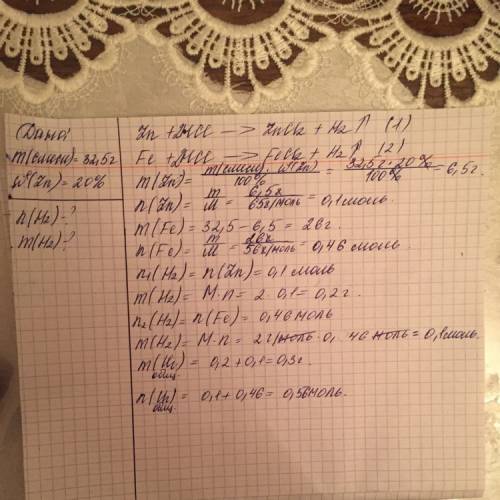 Дано:
m(смеси) = 32,5г
W(Zn) = 20%
n(H2) - ?
m(H2) - ?
Zn + 2HCl —> ZnCl2 + H2↑ (1)
Fe + 2HCl —> FeCl2 + H2↑ (2)
m(Zn) = m(смеси) · W(Zn) / 100% = 32,5г · 20% / 100% = 6,5г.
n(Zn) = m / M = 6,5г / 65г/моль = 0,1 моль.
m(Fe) = 32,5 - 6,5 = 26г.
n(Fe) = m / M = 26г / 56г/моль = 0,46 моль.
n1(H2) = n(Zn) = 0,1 моль
m(H2) = M·n = 2 · 0,1 = 0,2г.
n2(H2) = n(Fe) = 0,46 моль
m(H2) = M·n = 2г/моль · 0, 46 моль = моль.
m(H2) общ. = 0,2 + = 0,3г.
n(H2) общ. = 0,1 + 0,46 = 0,56 моль.